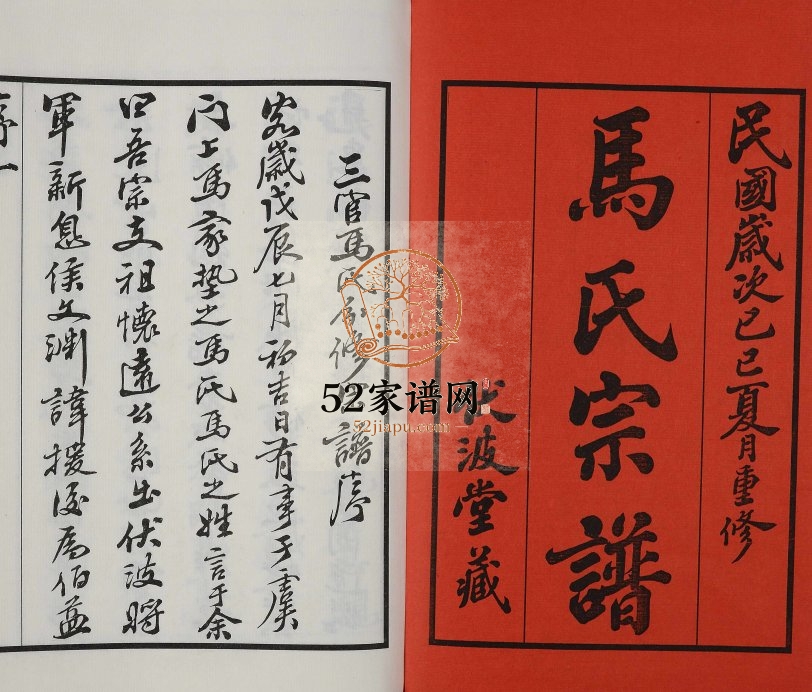 民國歲次己巳夏月重修
馬氏宗譜
伏波堂藏
三官馬氏 修 譜序
客歲戊辰七月初吉日有事于虞
門上馬家墊之馬氏馬氏之姓言于余
曰吾宗支祖懷遠公系出伏波將
軍新息侯文淵諱援後為伯益
序一
52家谱网
52jiapu.com